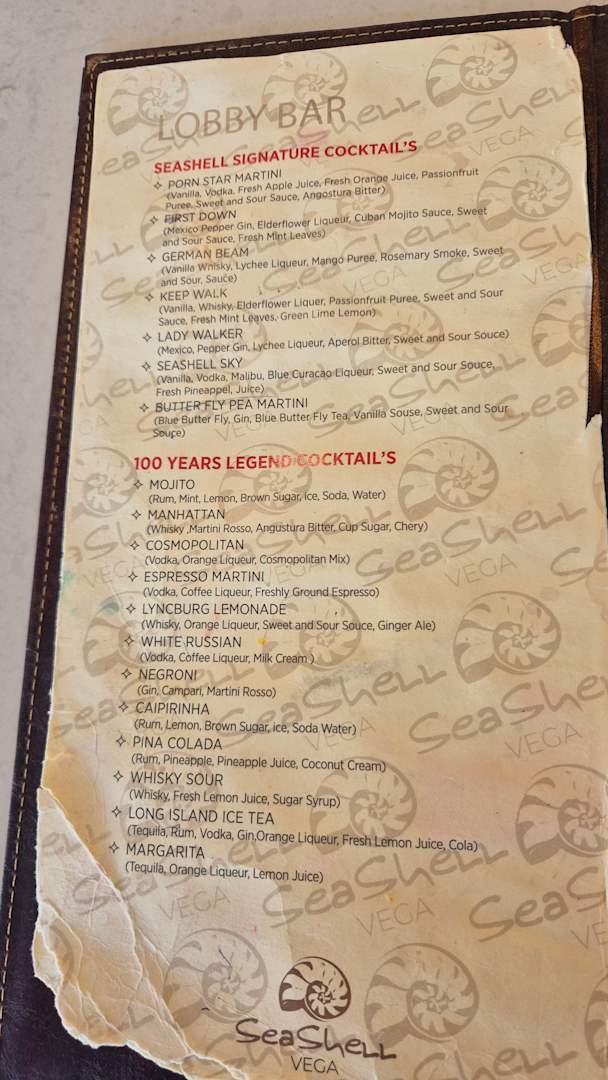 LOBBY BAR
SEASHELL SIGNATURE COCKTAIL'S
PORN STAR MARTINI
(Vanilla, Vodka, Fresh Apple Juice, Fresh Orange Juice, Passionfruit
Puree, Sweet and Sour Sauce, Angostura Bitter)
FIRST DOWN
(Mexico Pepper Gin, Elderflower Liqueur, Cuban Mojito Sauce, Sweet
and Sour Sauce, Fresh Mint Leaves)
GERMAN BEAM
(Vanilla Whisky, Lychee Liqueur, Mango Puree, Rosemary Smoke, Sweet
and Sour, Sauce)
KEEP WALK
(Vanilla, Whisky, Elderflower Liquer, Passionfruit Puree, Sweet and Sour
Sauce, Fresh Mint Leaves, Green Lime Lemon)
LADY WALKER
(Mexico, Pepper Gin, Lychee Liqueur, Aperol Bitter, Sweet and Sour Souce)
SEASHELL SKY
(Vanilla, Vodka, Malibu, Blue Curacao Liqueur, Sweet and Sour Souce,
Fresh Pineappel, Juice)
BUTTER FLY PEA MARTINI
(Blue Butter Fly, Gin, Blue Butter Fly Tea, Vanilla Souse, Sweet and Sour
Souce)
100 YEARS LEGEND COCKTAIL'S
MOJITO
(Rum, Mint, Lemon, Brown Sugar, ice, Soda, Water)
MANHATTAN
(Whisky ,Martini Rosso, Angustura Bitter, Cup Sugar, Chery)
COSMOPOLITAN
(Vodka, Orange Liqueur, Cosmopolitan Mix)
ESPRESSO MARTINI
(Vodka, Coffee Liqueur, Freshly Ground Espresso)
LYNCBURG LEMONADE
(Whisky, Orange Liqueur, Sweet and Sour Souce, Ginger Ale)
WHITE RUSSIAN
(Vodka, Coffee Liqueur, Milk Cream )
NEGRONI
(Gin, Campari, Martini Rosso)
CAIPIRINHA
(Rum, Lemon, Brown Sugar, ice, Soda Water)
PINA COLADA
(Rum, Pineapple, Pineapple Juice, Coconut Cream)
WHISKY SOUR
(Whisky, Fresh Lemon Juice, Sugar Syrup)
LONG ISLAND ICE TEA
(Tequila, Rum, Vodka, Gin,Orange Liqueur, Fresh Lemon Juice, Cola)
MARGARITA
(Tequila, Orange Liqueur, Lemon Juice)
SeaSheLL
VEGA